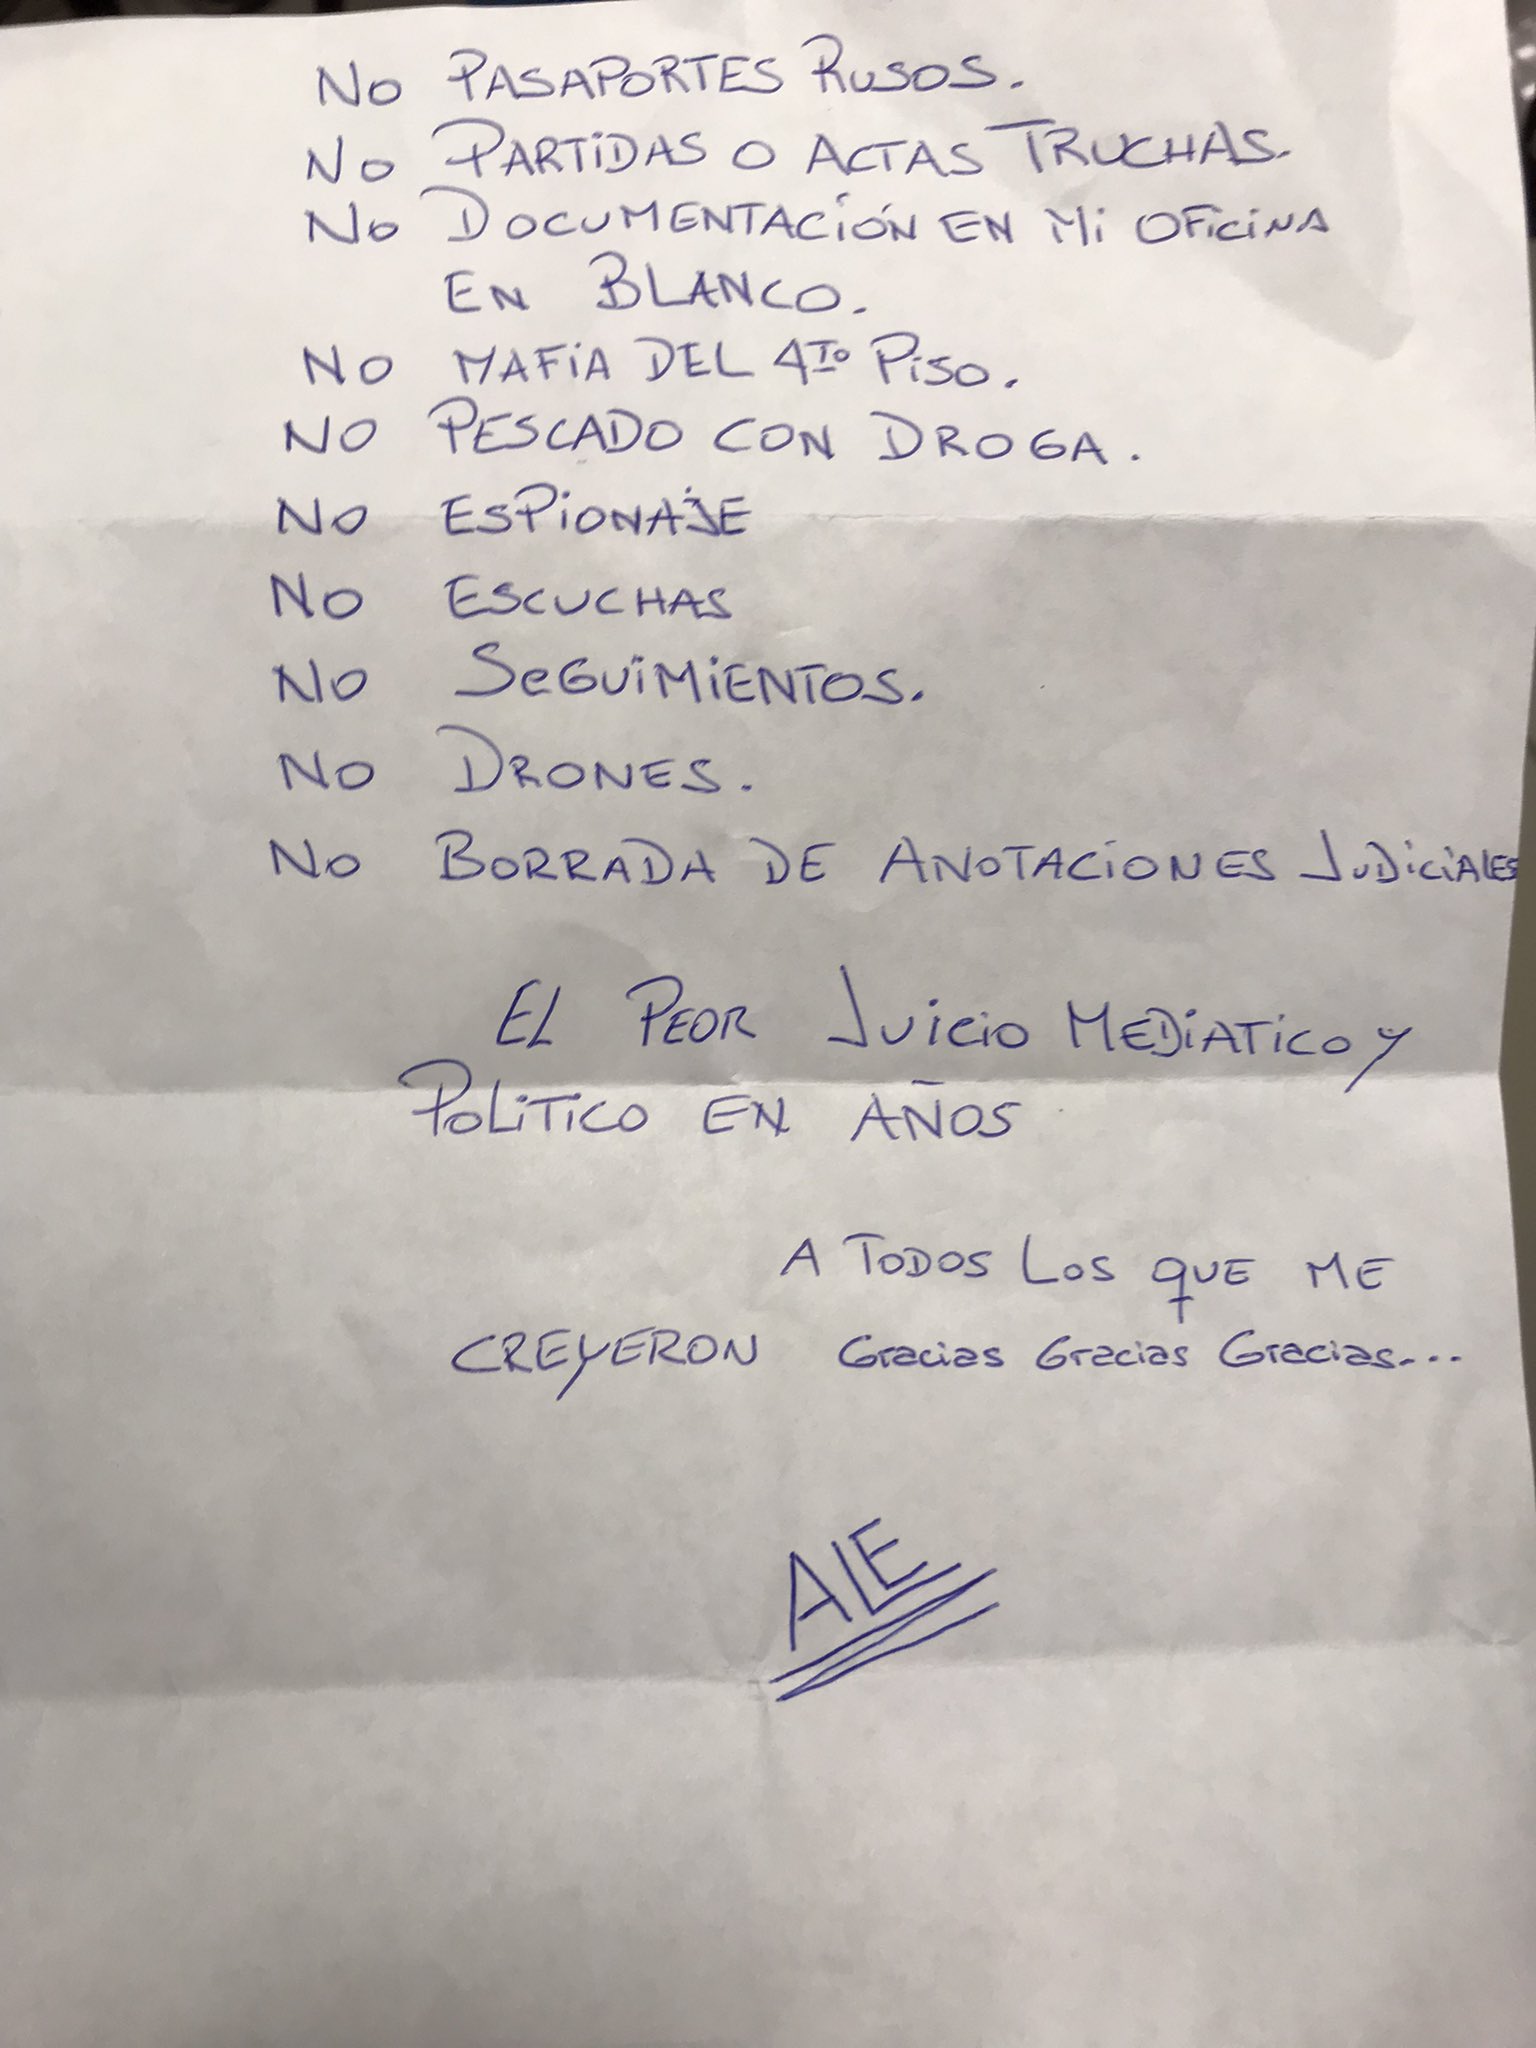 No PASAPORTES RUSOS.
No PARTIDAS O ACTAS TRUCHAS.
No DOCUMENTACIÓN EN Mi OFICINA
EN BLANCO.
NO MAFIA DEL 4TO PISO.
NO PESCADO CON DROGA.
NO ESPIONAJE
NO ESCUCHAS
NO SeGUIMIENTOS.
NO DRONES.
NO BORRADA DE ANOTACIONES JUDICIALES
EL PEOR JUICIO MEDIATICO Y
POLITICO EN AÑOS
A TODOS LOS QUE ME
CREYERON Gracias Gracias Gracias...
ALE